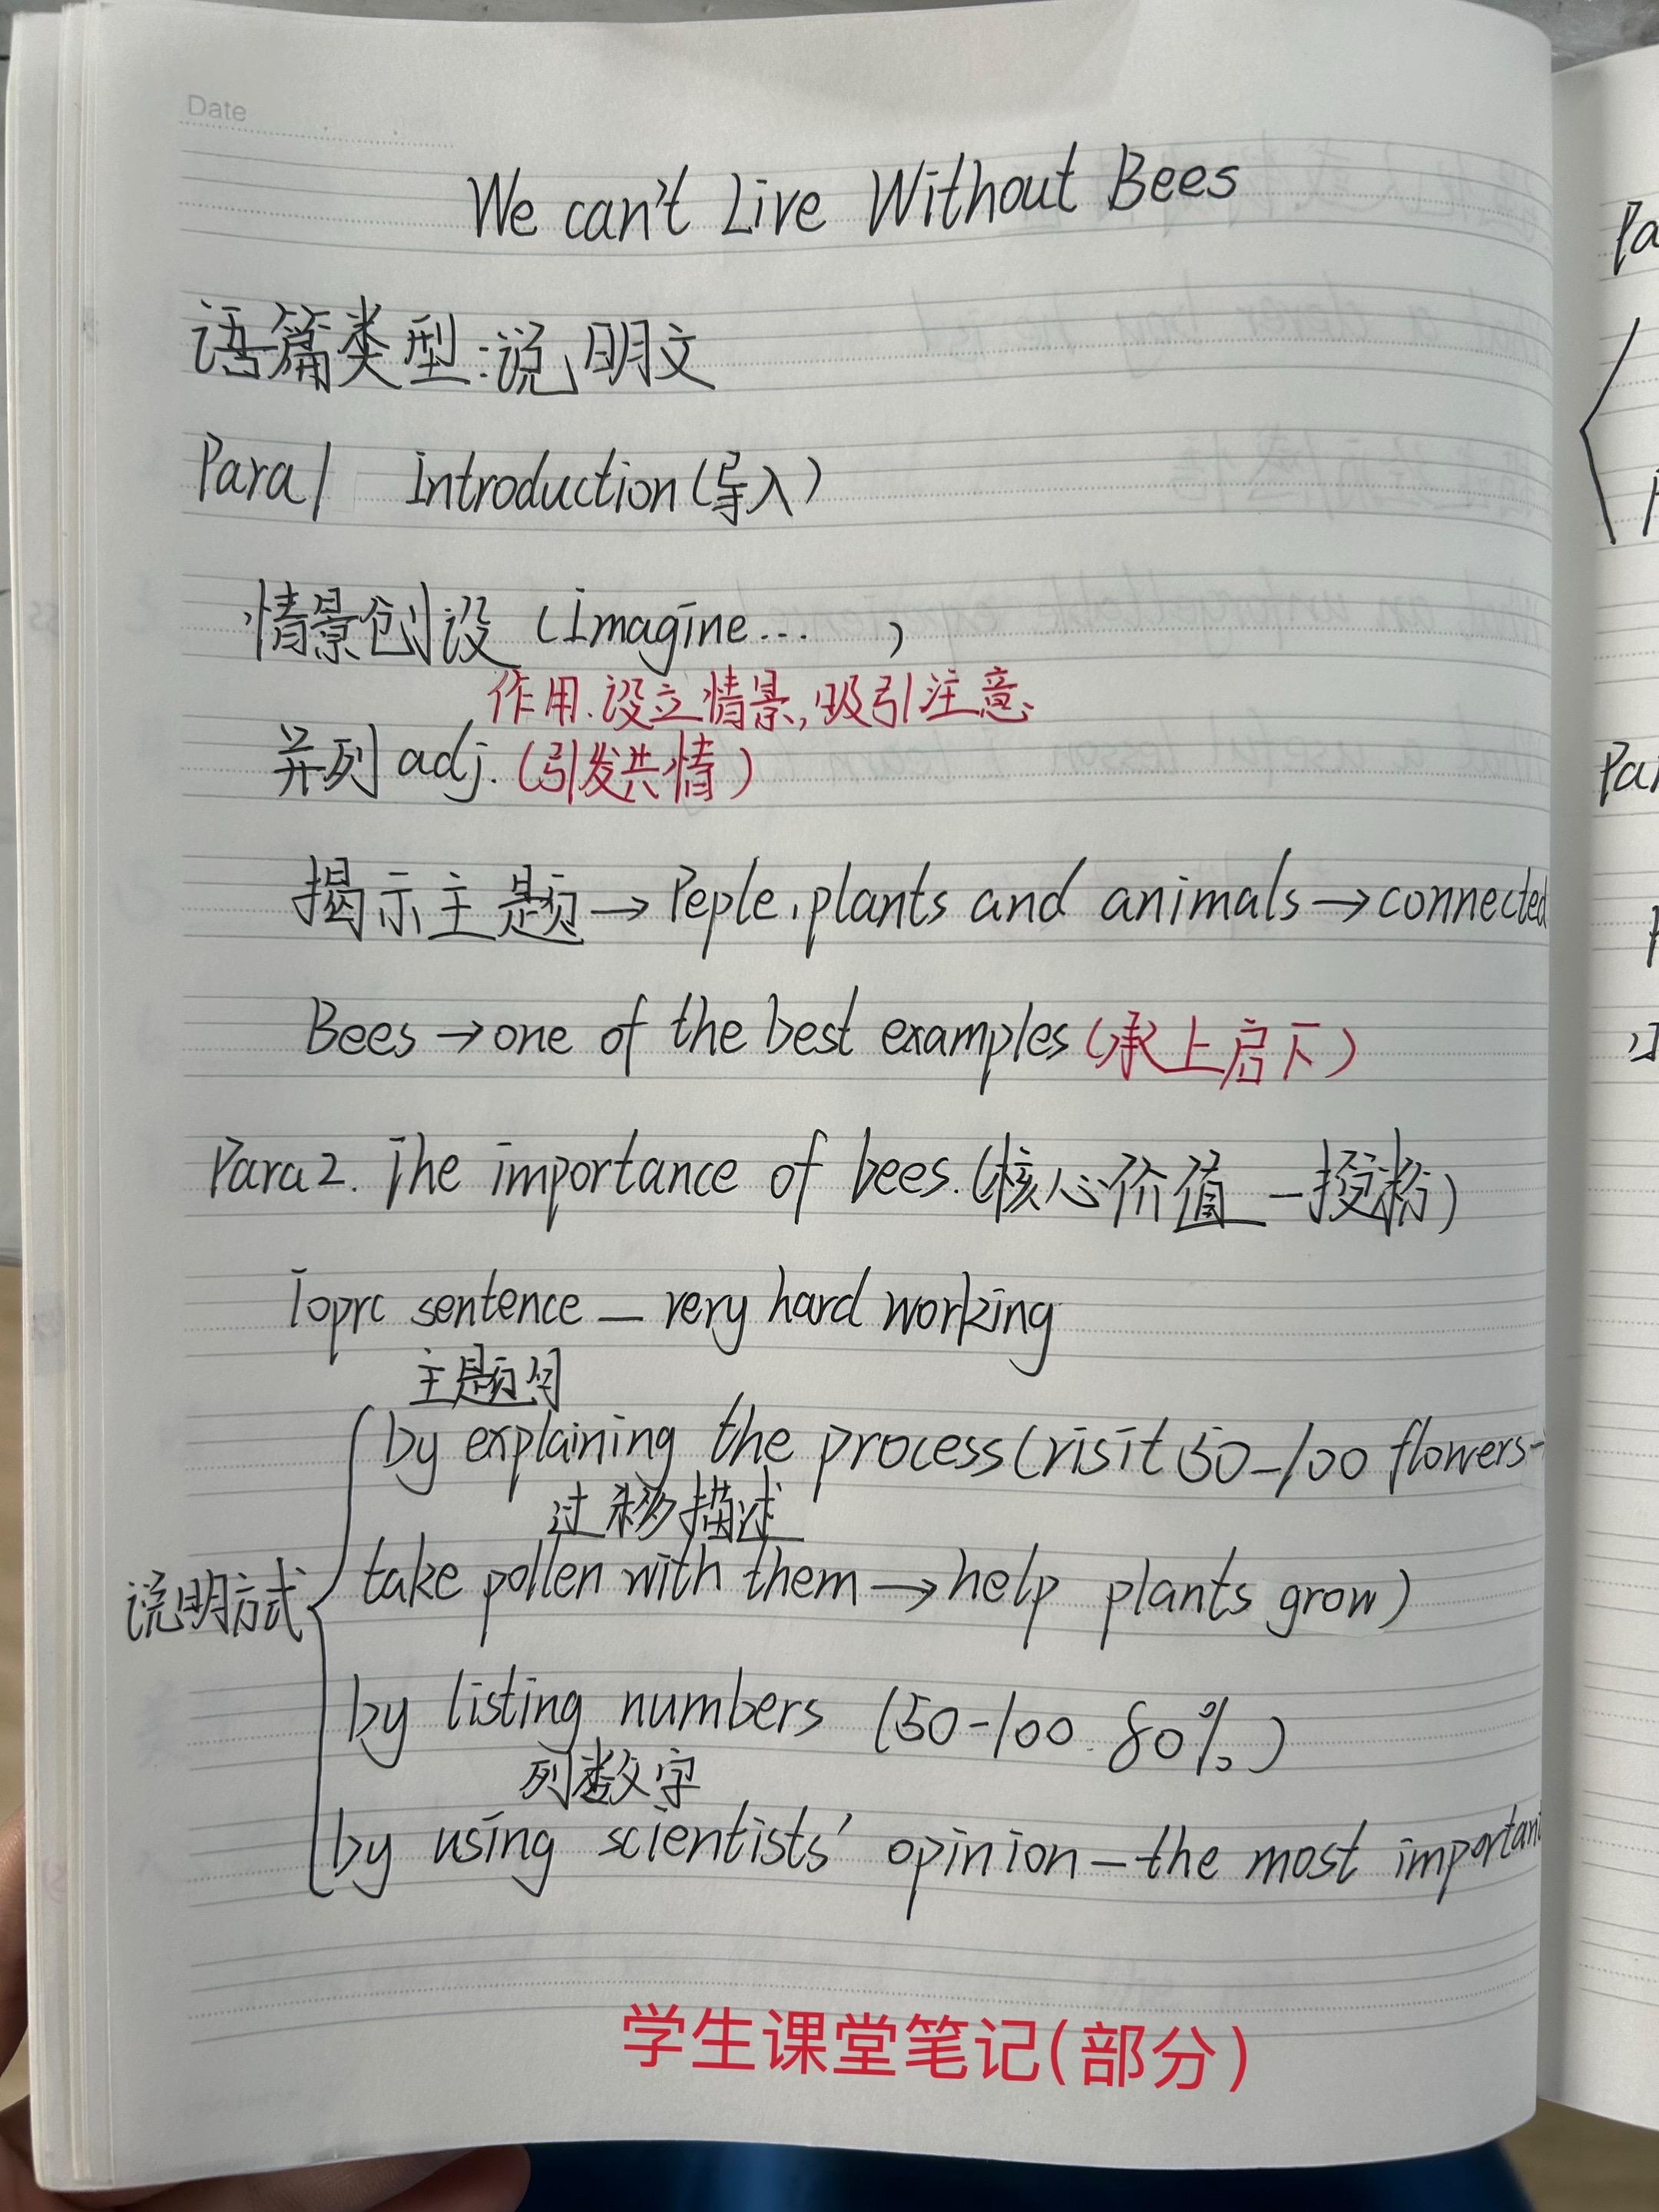 Date
We can't Live Without Bees
语篇类型:说明文
Para1 Introduction(导入)
情景创设 (Imagine... )
作用.设立情景,吸引注意
并列 adj. (引发共情)
揭示主题→Peple,plants and animals→connected
Bees→one of the best examples(承上启下)
Para2. The importance of bees.(核心价值—授粉)
Topic sentence—very hard working
主题句
by explaining the process(visit 50-100 flowers-
过程描述
take pollen with them→help plants grow)
说明方式
by listing numbers (50-100.80%)
列数字
by using scientists' opinion—the most important
学生课堂笔记(部分)